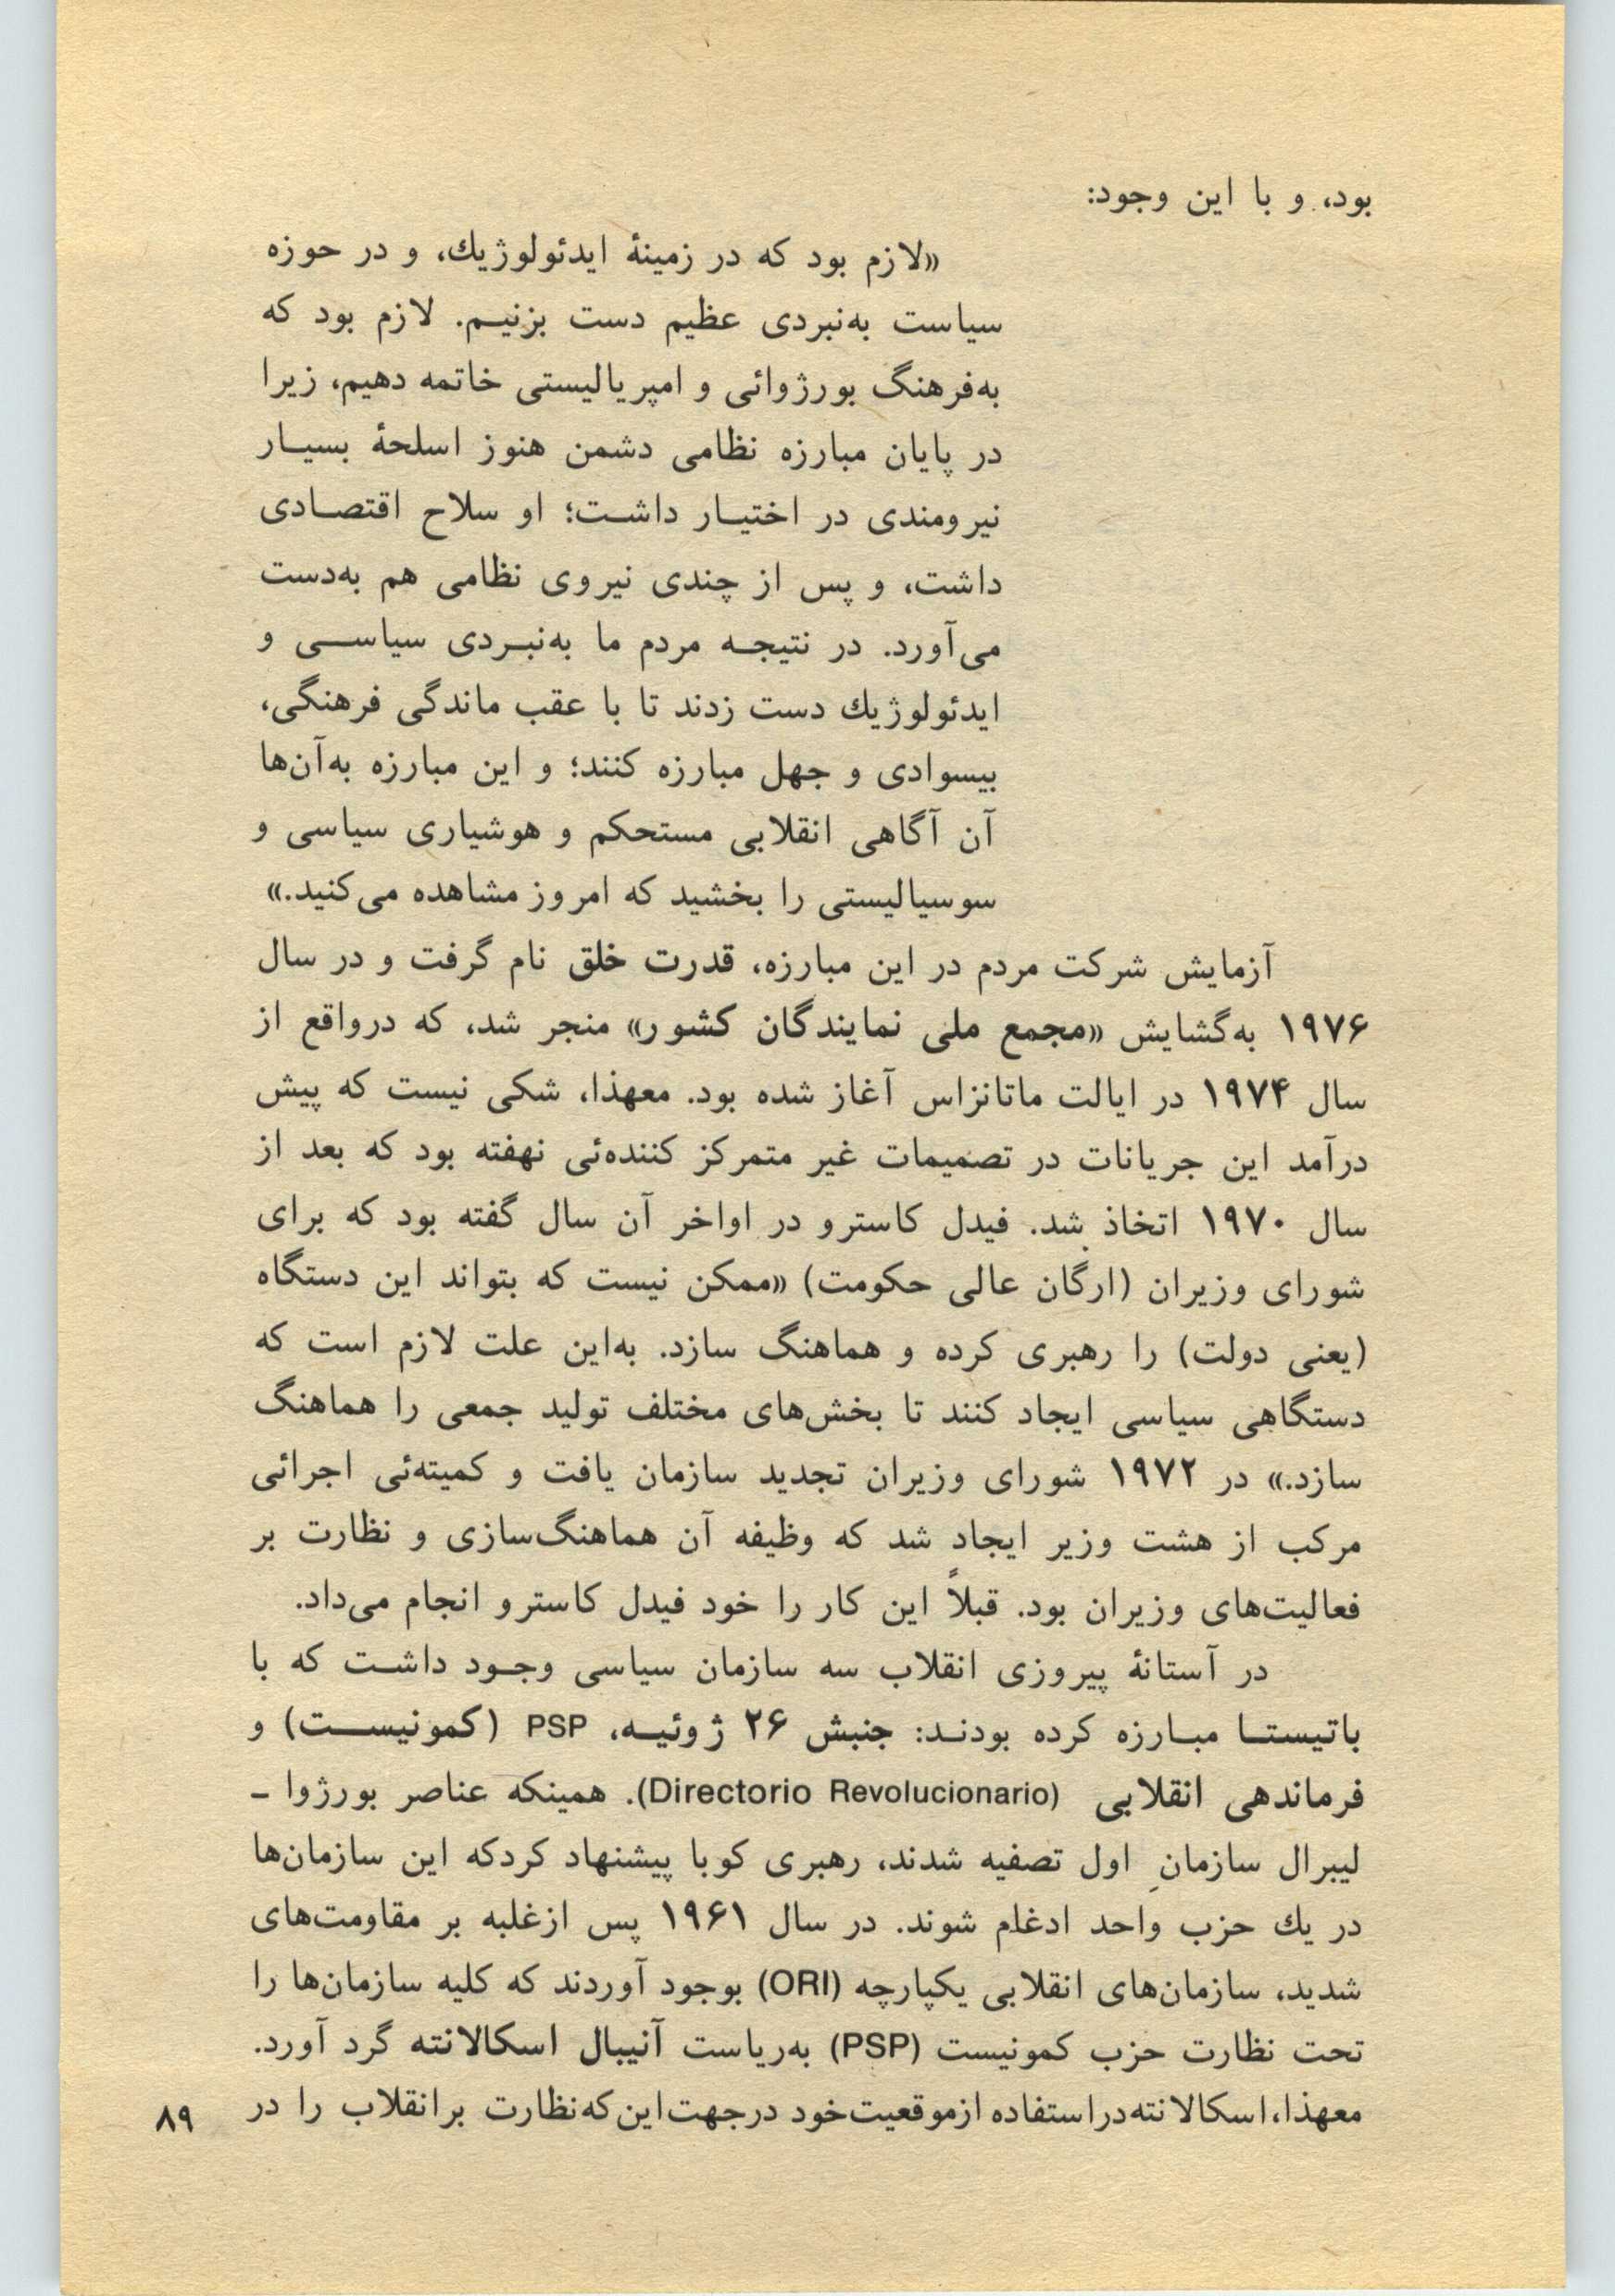 بود، و با این وجود:
«لازم بود که در زمینهٔ ایدئولوژیك، و در حوزه
سیاست به‌نبردی عظیم دست بزنیم. لازم بود که
به‌فرهنگ بورژوائی و امپریالیستی خاتمه دهیم، زیرا
در پایان مبارزه نظامی دشمن هنوز اسلحهٔ بسیار
نیرومندی در اختیار داشت؛ او سلاح اقتصادی
داشت، و پس از چندی نیروی نظامی هم به‌دست
می‌آورد. در نتیجه مردم ما به‌نبردی سیاسی و
ایدئولوژیك دست زدند تا با عقب ماندگی فرهنگی،
بیسوادی و جهل مبارزه کنند؛ و این مبارزه به‌آن‌ها
آن آگاهی انقلابی مستحکم و هوشیاری سیاسی و
سوسیالیستی را بخشید که امروز مشاهده می‌کنید.»
آزمایش شرکت مردم در این مبارزه، قدرت خلق نام گرفت و در سال
۱۹۷۶ به‌گشایش «مجمع ملی نمایندگان کشور» منجر شد، که درواقع از
سال ۱۹۷۴ در ایالت ماتانزاس آغاز شده بود. معهذا، شکی نیست که پیش
درآمد این جریانات در تصمیمات غیر متمرکز کننده‌ئی نهفته بود که بعد از
سال ۱۹۷۰ اتخاذ شد. فیدل کاسترو در اواخر آن سال گفته بود که برای
شورای وزیران (ارگان عالی حکومت) «ممکن نیست که بتواند این دستگاه
(یعنی دولت) را رهبری کرده و هماهنگ سازد. به‌این علت لازم است که
دستگاهی سیاسی ایجاد کنند تا بخش‌های مختلف تولید جمعی را هماهنگ
سازد.» در ۱۹۷۲ شورای وزیران تجدید سازمان یافت و کمیته‌ئی اجرائی
مرکب از هشت وزیر ایجاد شد که وظیفه آن هماهنگ‌سازی و نظارت بر
فعالیت‌های وزیران بود. قبلاً این کار را خود فیدل کاسترو انجام می‌داد.
در آستانهٔ پیروزی انقلاب سه سازمان سیاسی وجود داشت که با
باتیستا مبارزه کرده بودند: جنبش ۲۶ ژوئیه، PSP (کمونیست) و
فرماندهی انقلابی (Directorio Revolucionario). همینکه عناصر بورژوا ـ
لیبرال سازمانِ اول تصفیه شدند، رهبری کوبا پیشنهاد کردکه این سازمان‌ها
در یك حزب واحد ادغام شوند. در سال ۱۹۶۱ پس ازغلبه بر مقاومت‌های
شدید، سازمان‌های انقلابی یکپارچه (ORI) بوجود آوردند که کلیه سازمان‌ها را
تحت نظارت حزب کمونیست (PSP) به‌ریاست آنیبال اسکالانته گرد آورد.
معهذا،اسکالانته‌دراستفاده ازموقعیت‌خود درجهت‌این‌که‌نظارت برانقلاب را در
۸۹